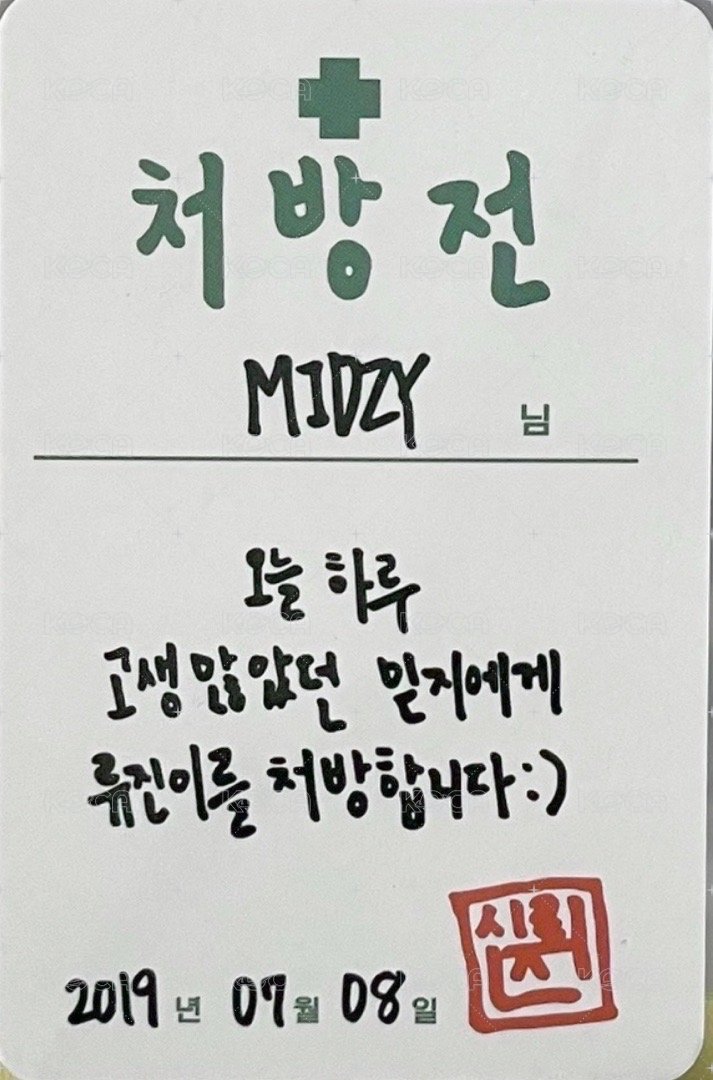 처방전
MIDZY 님
오늘 하루
고생 많았던 믿지에게
류진이를 처방합니다:)
2019년 07월 08일
신류진
KOCA